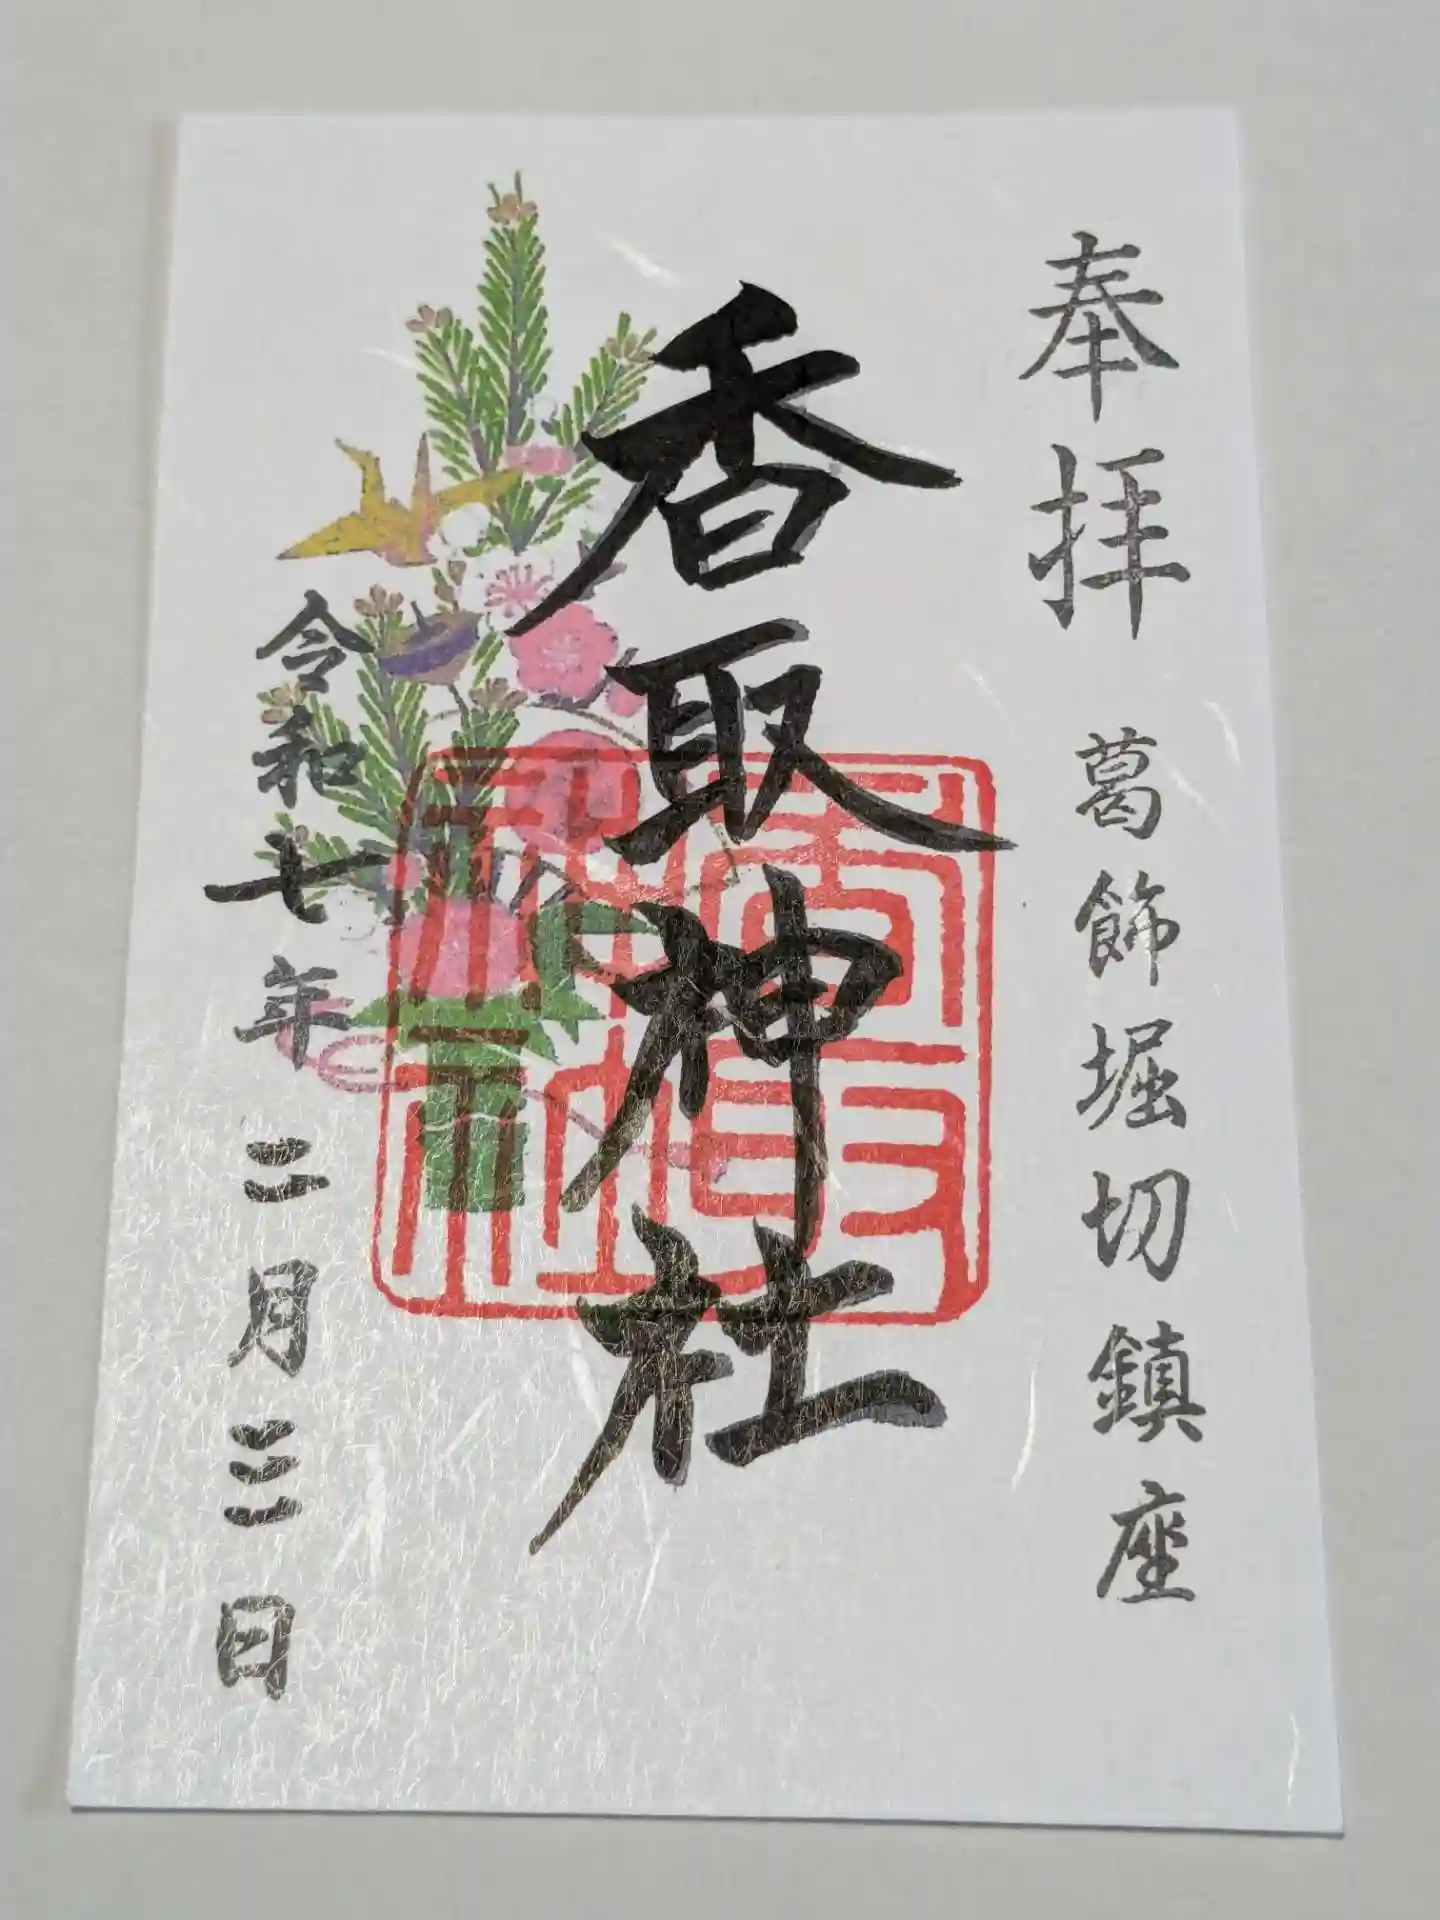 奉拝 葛飾堀切鎮座
香取神社
香取神社
令和七年二月三日